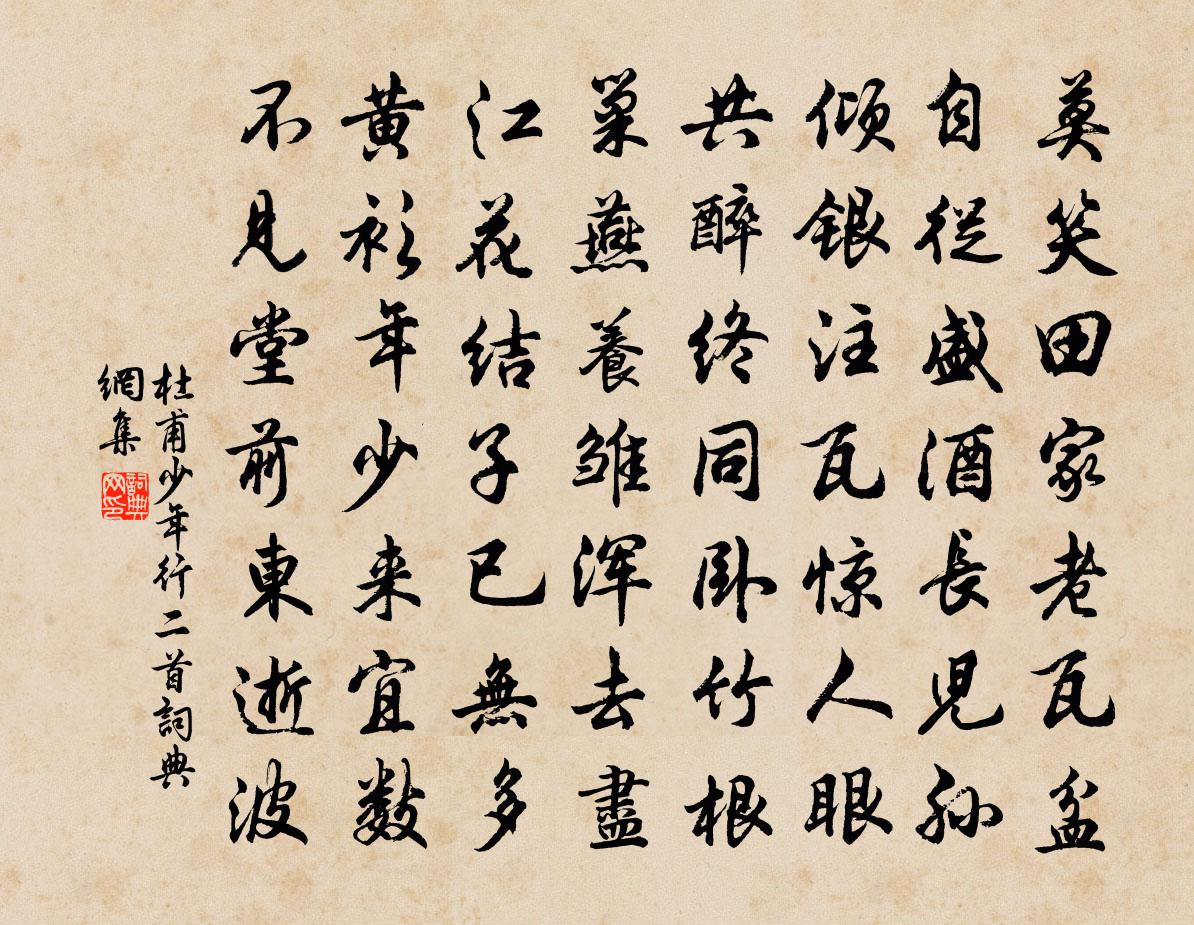 莫笑田家老瓦盆
自從盛酒長児孫
倾銀注瓦惊人眼
共醉终同卧竹根
巢燕養雏浑去盡
江花结子已無多
黄衫年少来宜数
不見堂前東逝波
杜甫少年行二首詞典
網集
詞典
网印